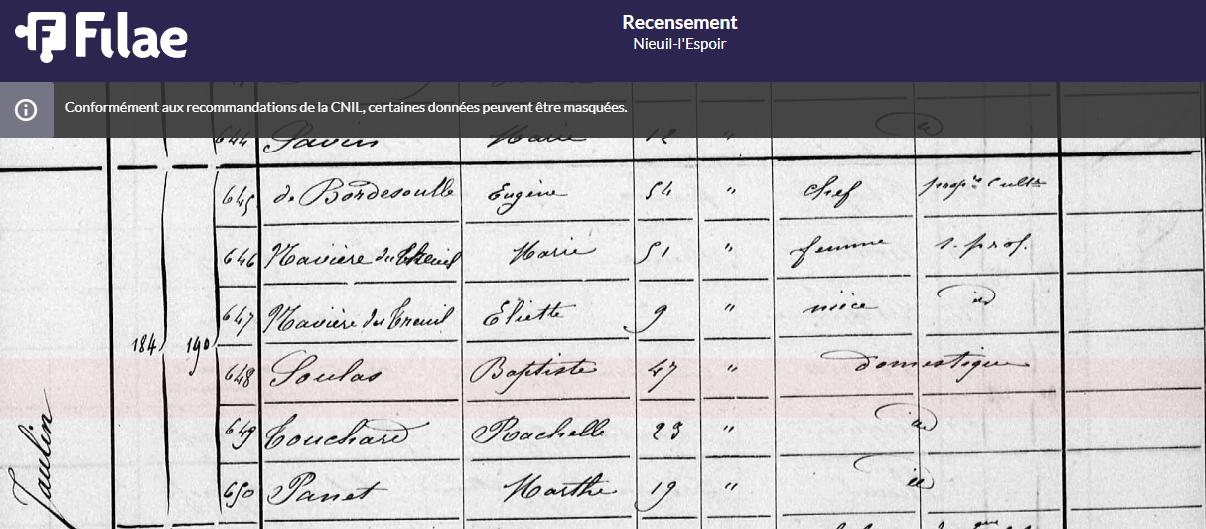 Filae
Recensement
Nieuil-l'Espoir
Conformément aux recommandations de la CNIL, certaines données peuvent être masquées.
644 Savin Marie 12 " id
645 de Bordesoulle Eugène 54 " chef prop.re cult.
646 Navière du Treuil Marie 51 " femme s. prof.
647 Navière du Treuil Eliette 9 " nièce id
184 190
648 Soulas Baptiste 47 " domestique
649 Touchard Rachelle 23 " id
650 Panet Marthe 19 " id
Jaulin